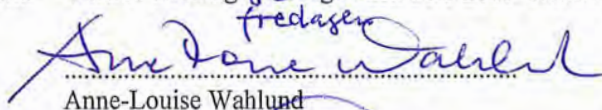 fredagen
Anne-Louise Wahlund
Anne-Louise Wahlund